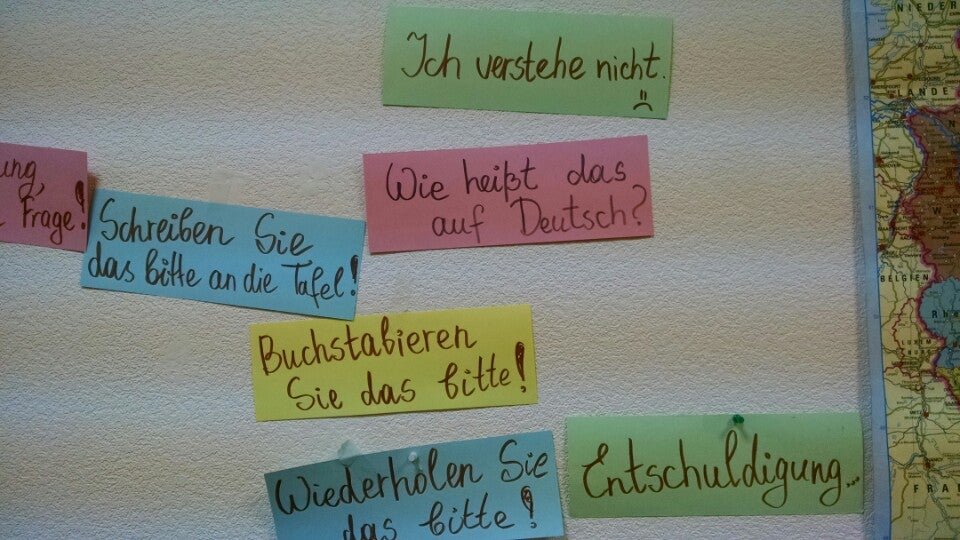 Ich verstehe nicht.
Wie heißt das
auf Deutsch?
ung,
Frage!
Schreiben Sie
das bitte an die Tafel!
Buchstabieren
Sie das bitte!
Wiederholen Sie
das bitte!
Entschuldigung...
NIEDER
LANDE
BELGIEN
LUXEM
FRA